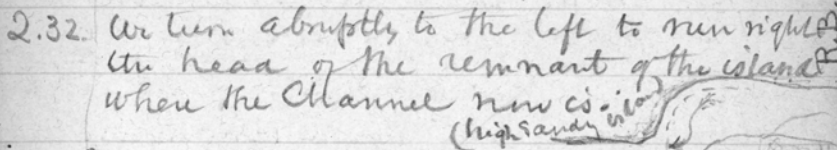 2.32. We turn abruptly to the left to run right to
the head of the remnant of the island
where the Channel now is.
(high sandy island)